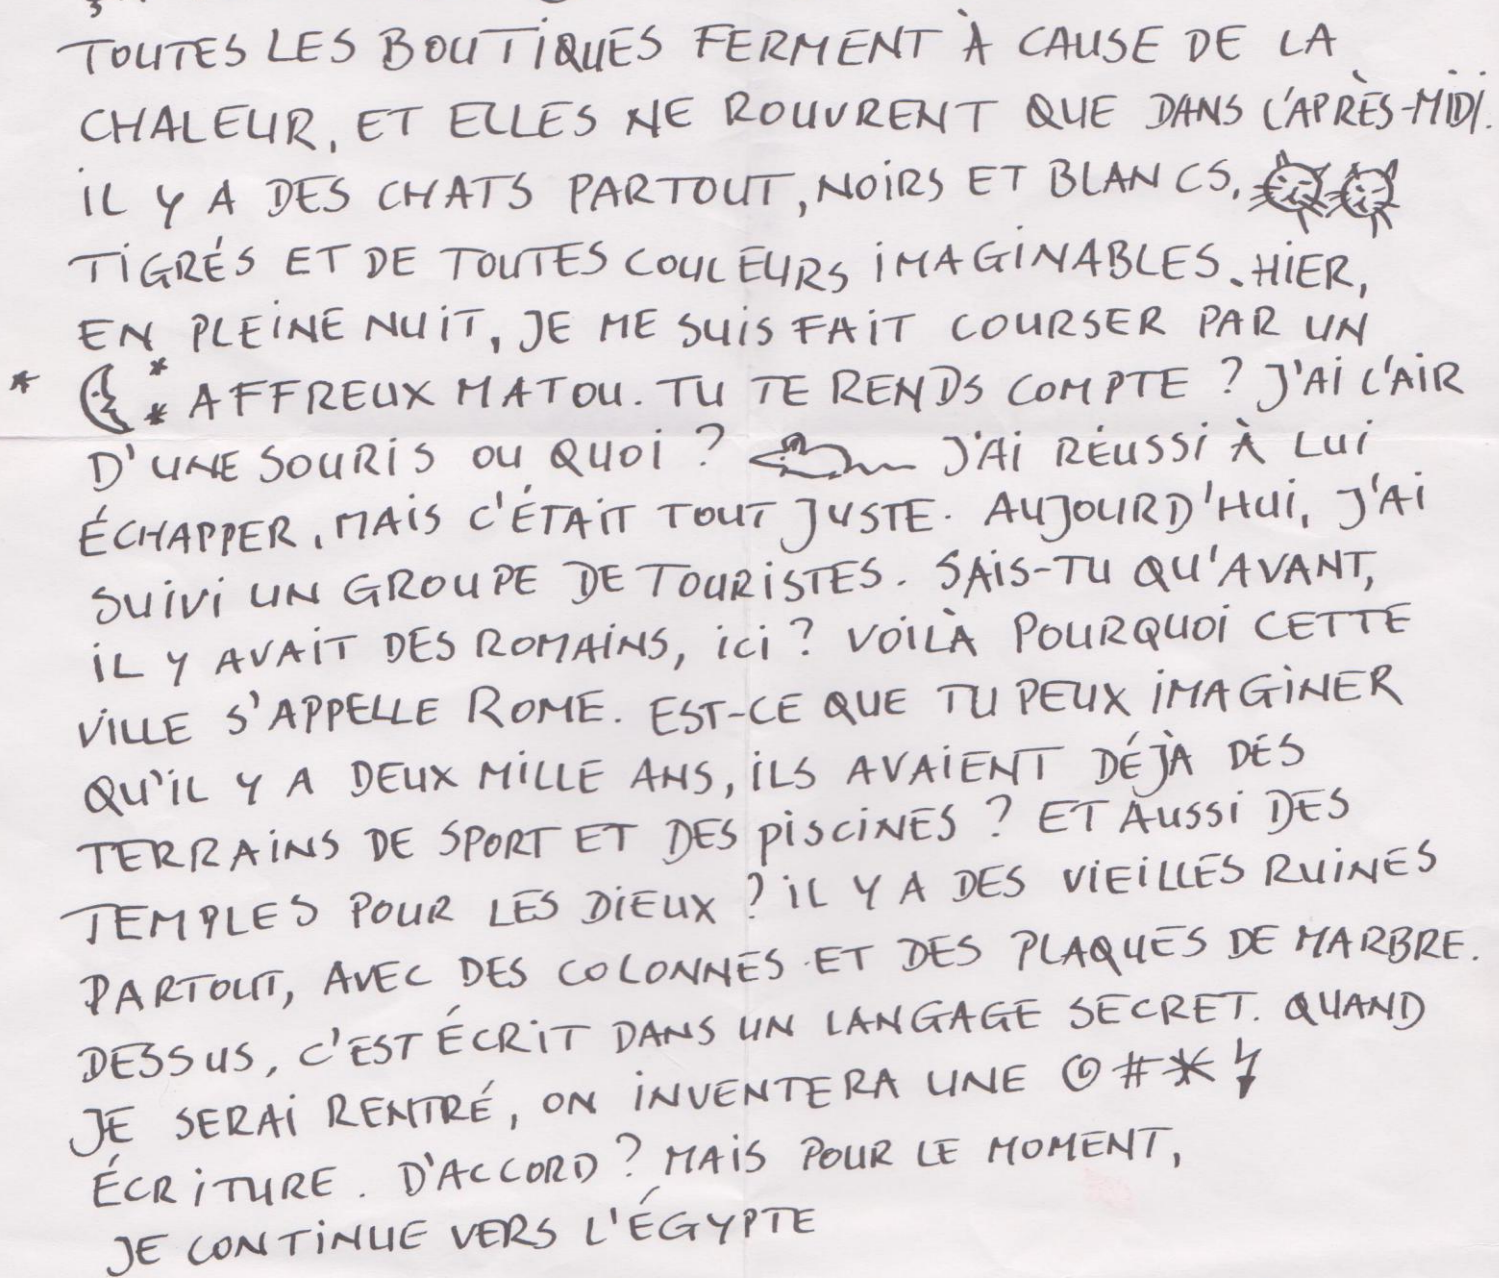 TOUTES LES BOUTIQUES FERMENT À CAUSE DE LA
CHALEUR, ET ELLES NE ROUVRENT QUE DANS L'APRÈS-MIDI.
IL Y A DES CHATS PARTOUT, NOIRS ET BLANCS,
TIGRÉS ET DE TOUTES COULEURS IMAGINABLES. HIER,
EN PLEINE NUIT, JE ME SUIS FAIT COURSER PAR UN
AFFREUX MATOU. TU TE RENDS COMPTE ? J'AI L'AIR
D'UNE SOURIS OU QUOI ? J'AI RÉUSSI À LUI
ÉCHAPPER, MAIS C'ÉTAIT TOUT JUSTE. AUJOURD'HUI, J'AI
SUIVI UN GROUPE DE TOURISTES. SAIS-TU QU'AVANT,
IL Y AVAIT DES ROMAINS, ICI ? VOILÀ POURQUOI CETTE
VILLE S'APPELLE ROME. EST-CE QUE TU PEUX IMAGINER
QU'IL Y A DEUX MILLE ANS, ILS AVAIENT DÉJÀ DES
TERRAINS DE SPORT ET DES PISCINES ? ET AUSSI DES
TEMPLES POUR LES DIEUX ? IL Y A DES VIEILLES RUINES
PARTOUT, AVEC DES COLONNES ET DES PLAQUES DE MARBRE.
DESSUS, C'EST ÉCRIT DANS UN LANGAGE SECRET. QUAND
JE SERAI RENTRÉ, ON INVENTERA UNE @#*
ÉCRITURE. D'ACCORD ? MAIS POUR LE MOMENT,
JE CONTINUE VERS L'ÉGYPTE